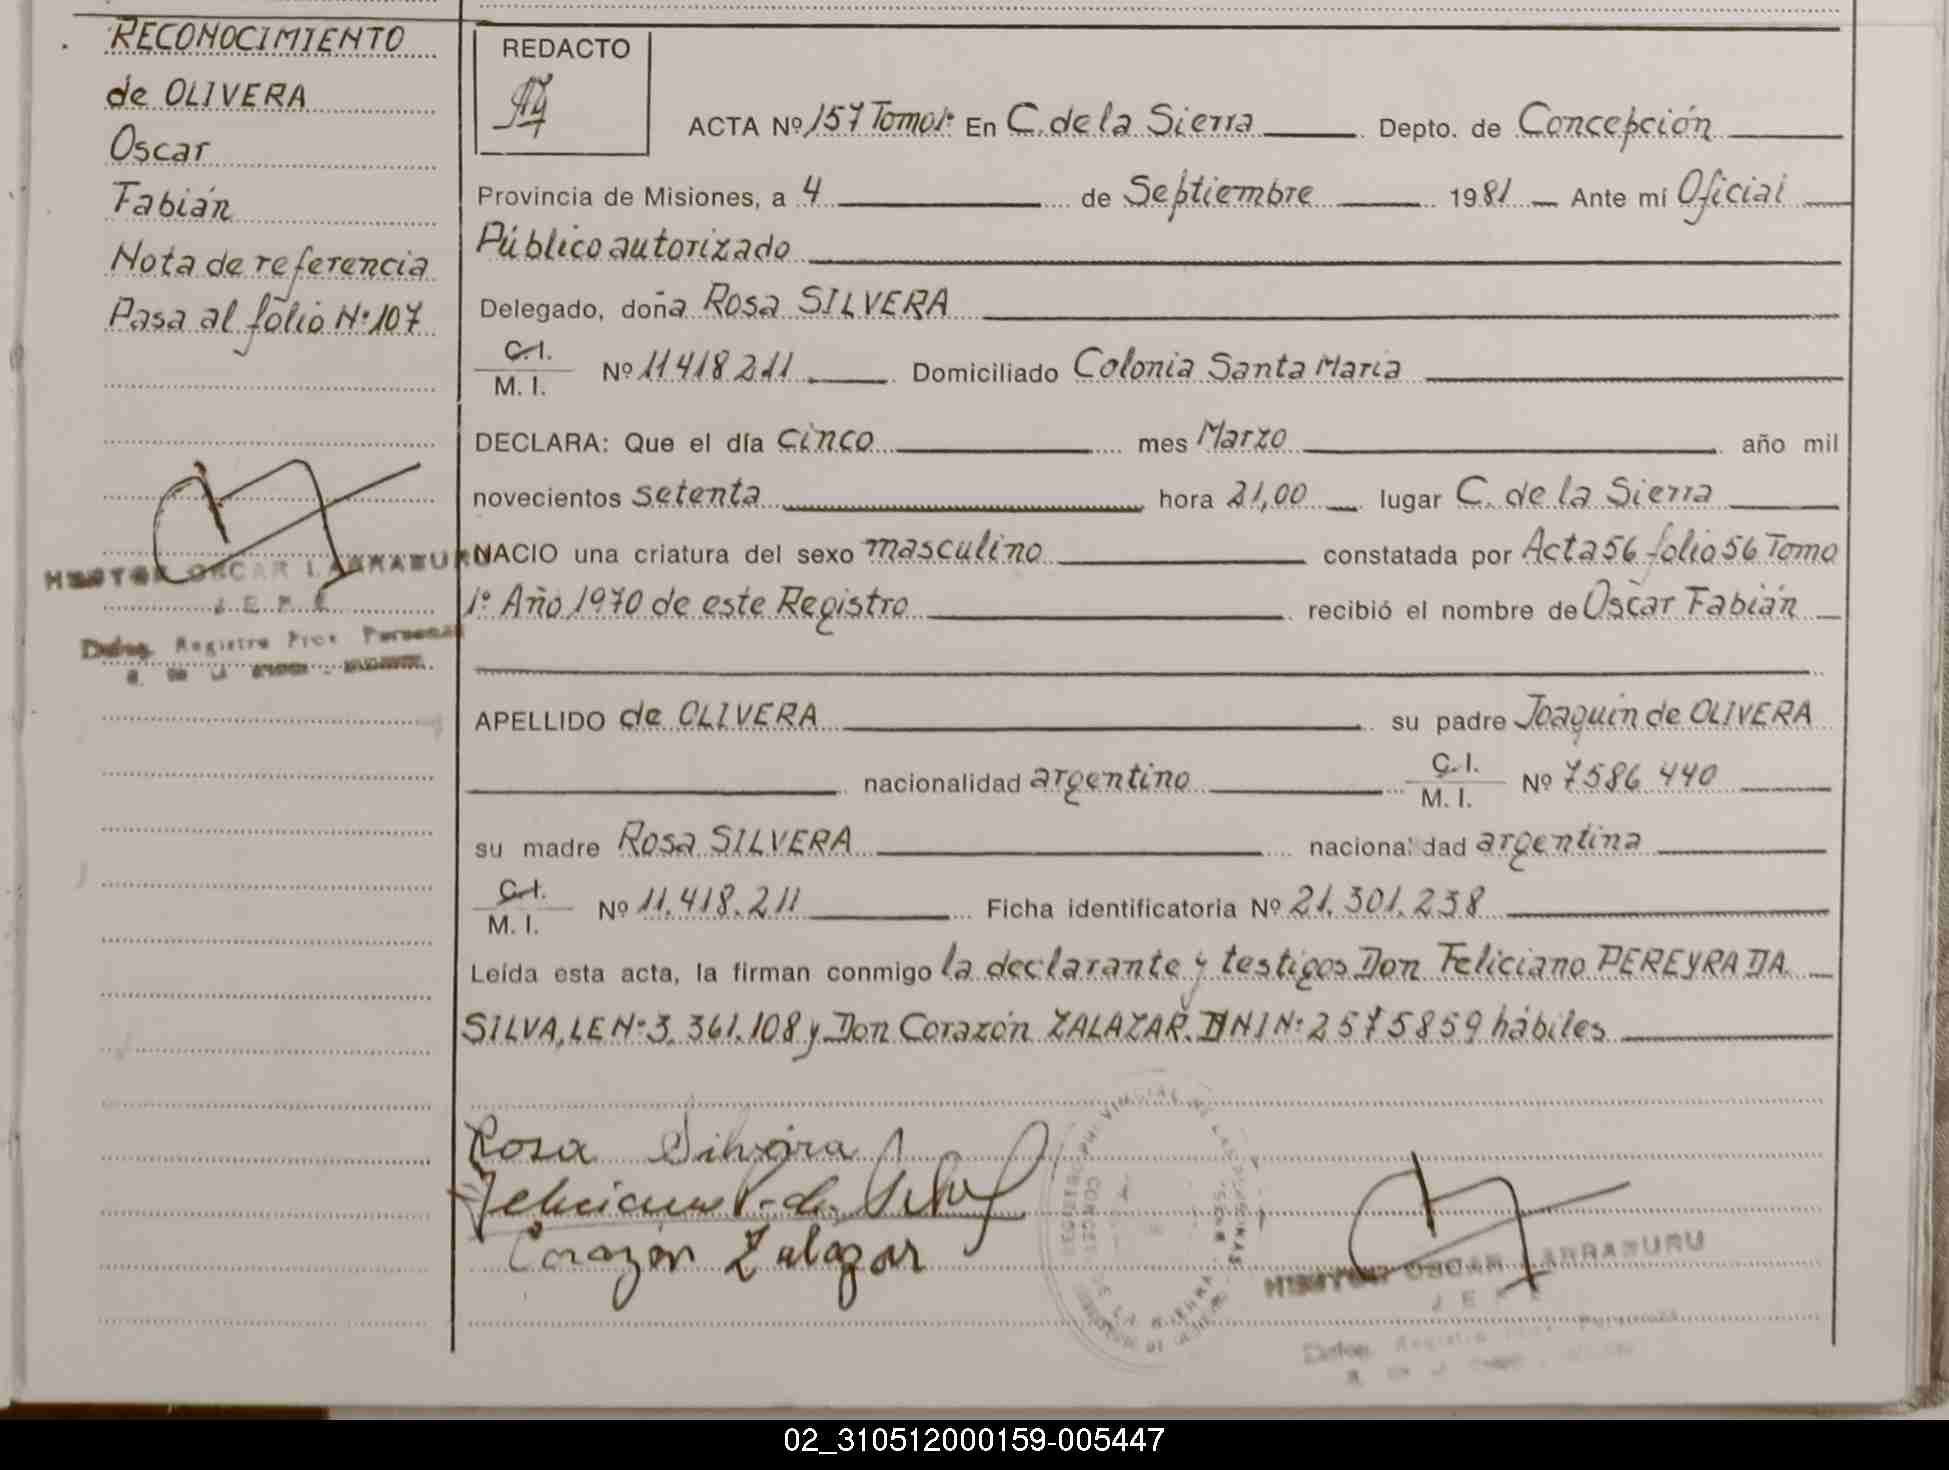 RECONOCIMIENTO
de OLIVERA
Oscar
Fabián
Nota de referencia
Pasa al folio Nº 107
HECTOR OSCAR LARRABURU
JEFE
Deleg. Registro Prov. Personas
REDACTO
ACTA Nº 157 Tomo 1º En C. de la Sierra Depto. de Concepción
Provincia de Misiones, a 4 de Septiembre 1981 Ante mí Oficial
Público autorizado
Delegado, doña Rosa SILVERA
C.I.
M. I. Nº 11418211 Domiciliado Colonia Santa María
DECLARA: Que el día cinco mes Marzo año mil
novecientos setenta hora 21,00 lugar C. de la Sierra
NACIO una criatura del sexo masculino constatada por Acta 56 folio 56 Tomo
1º Año 1970 de este Registro recibió el nombre de Oscar Fabián
APELLIDO de OLIVERA su padre Joaquín de OLIVERA
nacionalidad argentino C.I.
M. I. Nº 7586440
su madre Rosa SILVERA nacionalidad argentina
C.I.
M. I. Nº 11.418.211 Ficha identificatoria Nº 21.301.238
Leída esta acta, la firman conmigo la declarante y testigos Don Feliciano PEREYRA DA
SILVA, LE Nº 3.361.108 y Don Corazón ZALAZAR. DNI Nº 2575859 hábiles
Rosa Silvera
Feliciano P. da Silva
Corazón Zalazar
HECTOR OSCAR LARRABURU
JEFE
Deleg. Registro Prov. Personas
02_310512000159-005447